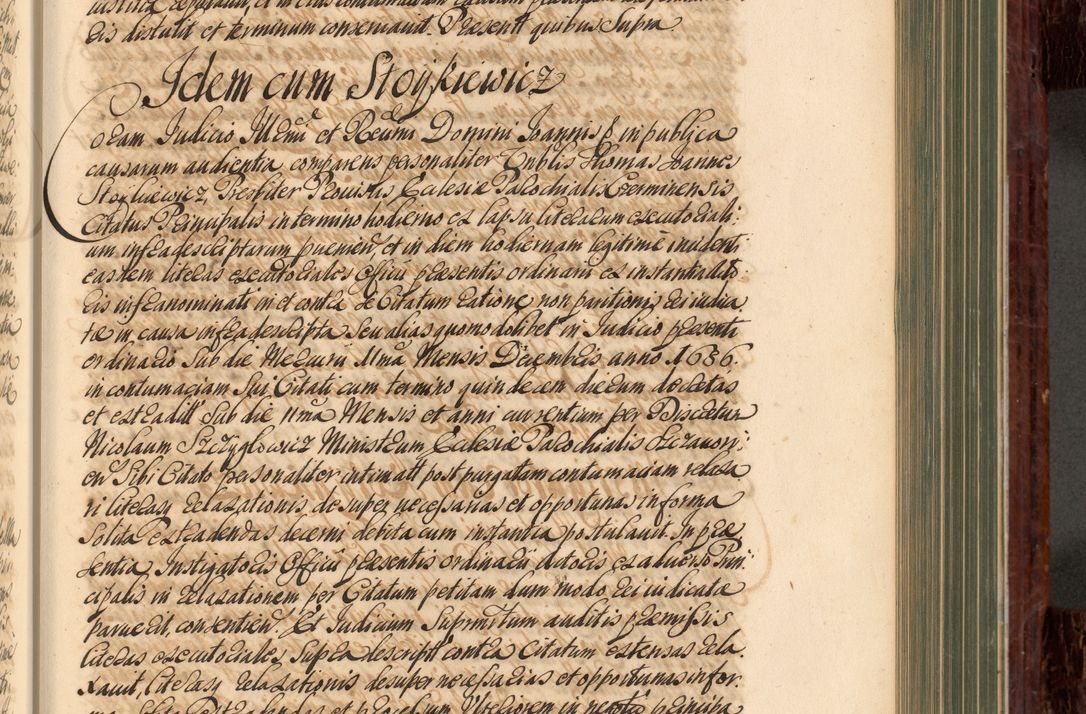 eis distulit et terminum conservavit. Præsent quibus supra
Idem cum Stoykiewicz
Coram Judicio Illmi et Rdmi Domini Joannis p. in publica
causarum audientia, comparens personaliter Hnblis Thomas Joannes
Stoykiewicz, Presbiter Provisus Ecclesiæ Parochialis Czerminensis
Citatus Principalis in termino hodierno ex lapsu literarum executoriali:
um infrascriptarum provenien, et in diem hodiernam legitime incident,
eastem literas executoriales Officii præsentis ordinarii ex instantia Acto:
ris infranominati in et contra se Citatum ratione non paritionis rei iudica
tæ in causa infradescripta seu alias quomodolibet in Judicio præsenti
ordinario sub die Mercurii 11ma Mensis Decembris anno 1686
in contumaciam sui Citati cum termino quindecem dierum decretas
et extradit sub die 11ma Mensis et anni currentium per Discretum
Nicolaum Szczygłowicz Ministrum Ecclesiæ Parochialis Szczurow:
en sibi Citato personaliter intimatt post purgatam contumaciam relaxa
ri literasq relaxationis desuper necessarias et opportunas in forma
solita extradendas decerni debita cum instantia postulavit. In præ
sentia Instigatoris Officii præsentis ordinarii Actoris ex adverso Prin:
cipalis in relaxationem per Citatum petitam dum modo rei iudicata
parverit, consentien. Et Judicium Suprmitum auditis præmissis
literas executoriales, supra descript contra Citatum extensas rela
xavit, literasq relaxationis desuper necessarias et opportunas in for: